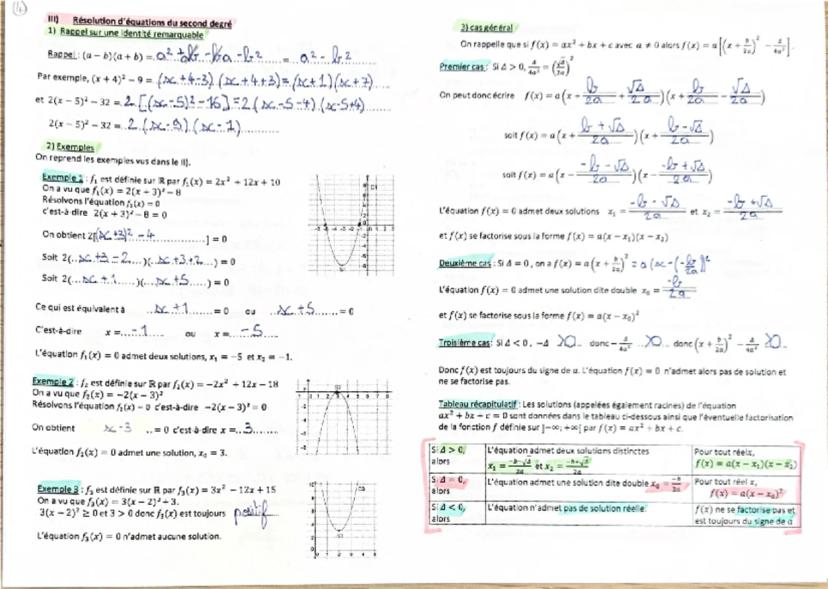 4
III) Résolution d'équations du second degré
1) Rappel sur une identité remarquable
Rappel : (a − b)(a + b) = a² + ab − ba − b² = a² − b²
Par exemple, (x + 4)² − 9 = (x+4−3)(x+4+3) = (x+1)(x+7)
et 2(x − 5)² − 32 = 2[(x−5)²−16] = 2(x−5−4)(x−5+4)
2(x − 5)² − 32 = 2(x−9)(x−1)
2) Exemples
On reprend les exemples vus dans le II).
Exemple 1 : f₁ est définie sur ℝ par f₁(x) = 2x² + 12x + 10
On a vu que f₁(x) = 2(x + 3)² − 8
Résolvons l'équation f₁(x) = 0
c'est-à-dire 2(x + 3)² − 8 = 0
On obtient 2[(x+3)² − 4] = 0
Soit 2(x+3−2)(x+3+2) = 0
Soit 2(x+1)(x+5) = 0
Ce qui est équivalent à x+1 = 0 ou x+5 = 0
C'est-à-dire x = −1 ou x = −5
L'équation f₁(x) = 0 admet deux solutions, x₁ = −5 et x₂ = −1.
Exemple 2 : f₂ est définie sur ℝ par f₂(x) = −2x² + 12x − 18
On a vu que f₂(x) = −2(x − 3)²
Résolvons l'équation f₂(x) = 0 c'est-à-dire −2(x − 3)² = 0
On obtient x−3 = 0 c'est-à-dire x = 3
L'équation f₂(x) = 0 admet une solution, x₀ = 3.
Exemple 3 : f₃ est définie sur ℝ par f₃(x) = 3x² − 12x + 15
On a vu que f₃(x) = 3(x − 2)² + 3.
3(x − 2)² ≥ 0 et 3 > 0 donc f₃(x) est toujours positif
L'équation f₃(x) = 0 n'admet aucune solution.
3) cas général
On rappelle que si f(x) = ax² + bx + c avec a ≠ 0 alors f(x) = a[(x + b/2a)² − Δ/4a²].
Premier cas : Si Δ > 0, Δ/4a² = (√Δ/2a)²
On peut donc écrire f(x) = a(x + b/2a + √Δ/2a)(x + b/2a − √Δ/2a)
soit f(x) = a(x + (b+√Δ)/2a)(x + (b−√Δ)/2a)
soit f(x) = a(x − (−b−√Δ)/2a)(x − (−b+√Δ)/2a)
L'équation f(x) = 0 admet deux solutions x₁ = (−b−√Δ)/2a et x₂ = (−b+√Δ)/2a
et f(x) se factorise sous la forme f(x) = a(x − x₁)(x − x₂)
Deuxième cas : Si Δ = 0, on a f(x) = a(x + b/2a)² = a(x−(−b/2a))²
L'équation f(x) = 0 admet une solution dite double x₀ = −b/2a
et f(x) se factorise sous la forme f(x) = a(x − x₀)²
Troisième cas : Si Δ < 0, −Δ >0 donc −Δ/4a² >0 donc (x + b/2a)² − Δ/4a² >0
Donc f(x) est toujours du signe de a. L'équation f(x) = 0 n'admet alors pas de solution et
ne se factorise pas.
Tableau récapitulatif : Les solutions (appelées également racines) de l'équation
ax² + bx + c = 0 sont données dans le tableau ci-dessous ainsi que l'éventuelle factorisation
de la fonction f définie sur ]−∞; +∞[ par f(x) = ax² + bx + c.
Si Δ > 0, alors
L'équation admet deux solutions distinctes
x₁ = (−b−√Δ)/2a et x₂ = (−b+√Δ)/2a
Pour tout réel x,
f(x) = a(x − x₁)(x − x₂)
Si Δ = 0, alors
L'équation admet une solution dite double x₀ = −b/2a
Pour tout réel x,
f(x) = a(x − x₀)²
Si Δ < 0, alors
L'équation n'admet pas de solution réelle
f(x) ne se factorise pas et
est toujours du signe de a